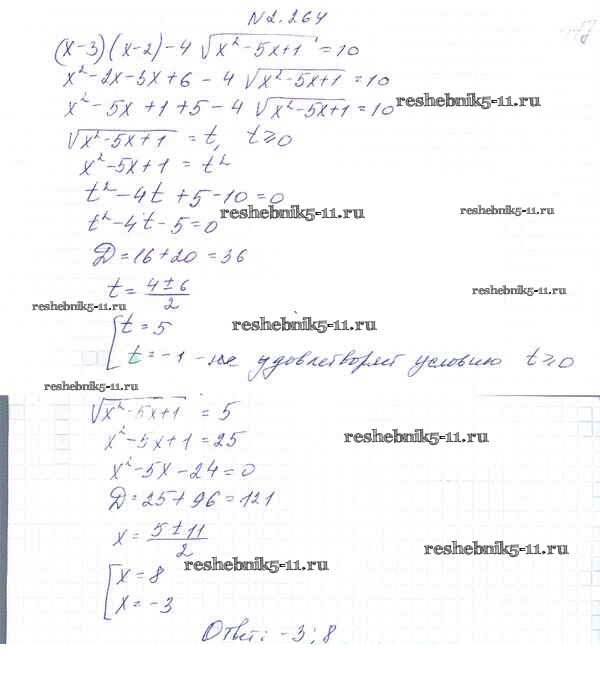 N2.264
(x-3)(x-2)-4√(x²-5x+1)=10
x²-2x-3x+6-4√(x²-5x+1)=10
x²-5x+1+5-4√(x²-5x+1)=10
reshebnik5-11.ru
√(x²-5x+1)=t, t≥0
x²-5x+1=t²
t²-4t+5-10=0
reshebnik5-11.ru
reshebnik5-11.ru
t²-4t-5=0
D=16+20=36
t=(4±6)/2
reshebnik5-11.ru
reshebnik5-11.ru
[t=5
reshebnik5-11.ru
t=-1 - не удовлетворяет условию t≥0
reshebnik5-11.ru
√(x²-5x+1)=5
x²-5x+1=25
reshebnik5-11.ru
x²-5x-24=0
D=25+96=121
x=(5±11)/2
reshebnik5-11.ru
reshebnik5-11.ru
[x=8
x=-3
Ответ: -3; 8